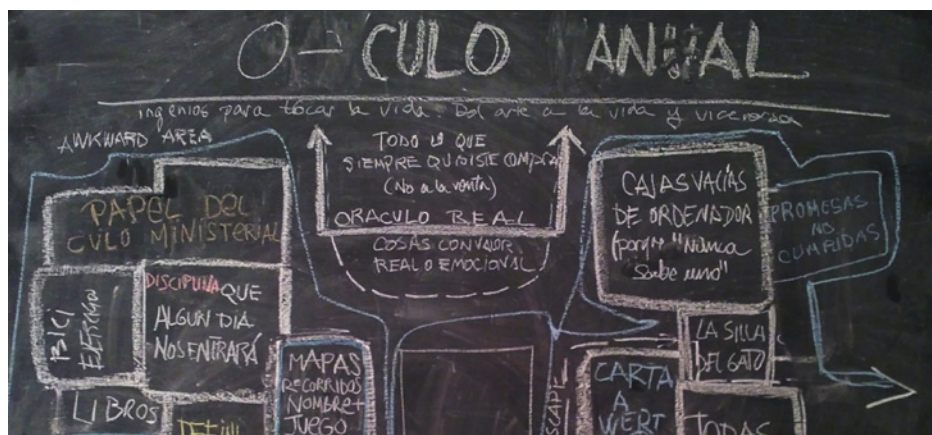 O-CULO ANUAL
ingenios para tocar la vida. Del arte a la vida y viceversa
AWKWARD AREA
TODO LO QUE
SIEMPRE QUISISTE COMPRAR
(No a la venta)
ORACULO REAL
COSAS CON VALOR
REAL O EMOCIONAL
PAPEL DEL
CULO MINISTERIAL
BICI
DISCIPLINA QUE
ALGUN DIA
NOS ENTRARÁ
LIBROS
MAPAS
RECORRIDOS
NOMBRE +
JUEGO
CAJAS VACÍAS
DE ORDENADOR
(porque "Nunca
Sabe uno"
PROMESAS
NO
CUMPRIDAS
LA SILLA
DEL GATO
CARTA
A
WERT
TODAS